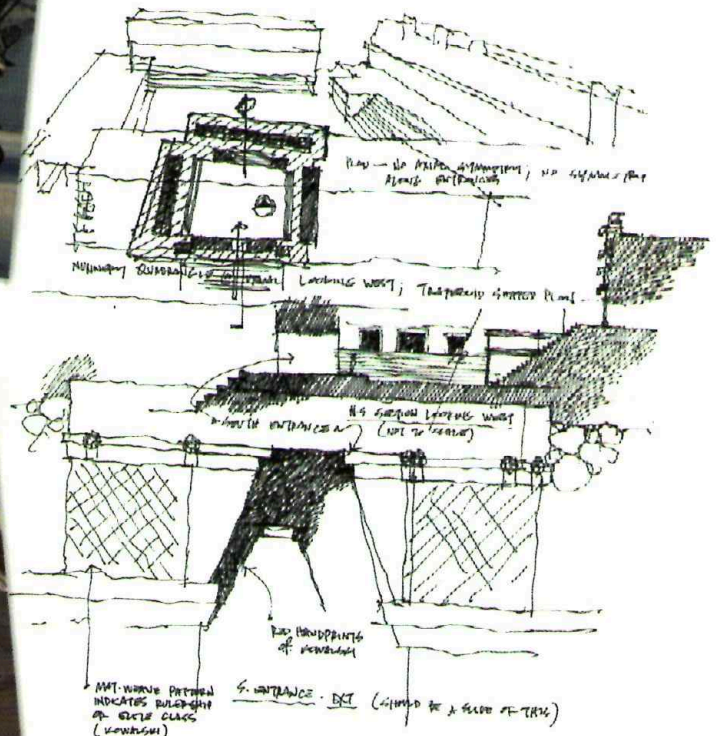 PLAN — NO AXIAL SYMMETRY; NO SYMMETRY
ALONG ENTRANCES
NUNNERY QUADRANGLE LOOKING WEST; TRAPEZOID SHAPED PLAN
SOUTH ENTRANCE
N-S SECTION LOOKING WEST
(NOT TO SCALE)
RED HANDPRINTS
OF KOWALSKI
MAT-WEAVE PATTERN
INDICATES RULERSHIP
OR ELITE CLASS
(KOWALSKI)
S. ENTRANCE - EXT (SHOULD BE A SLIDE OF THIS)